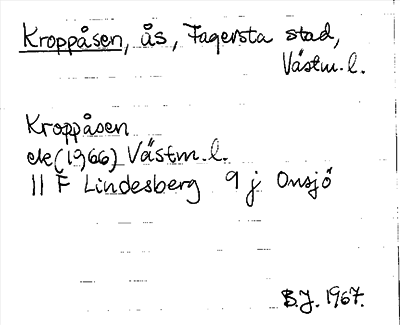 Kroppåsen, ås, Fagersta stad,
Västm. l.
Kroppåsen
ek (1966) Västm. l.
11 F Lindesberg 9 j Onsjö
B.J. 1967.